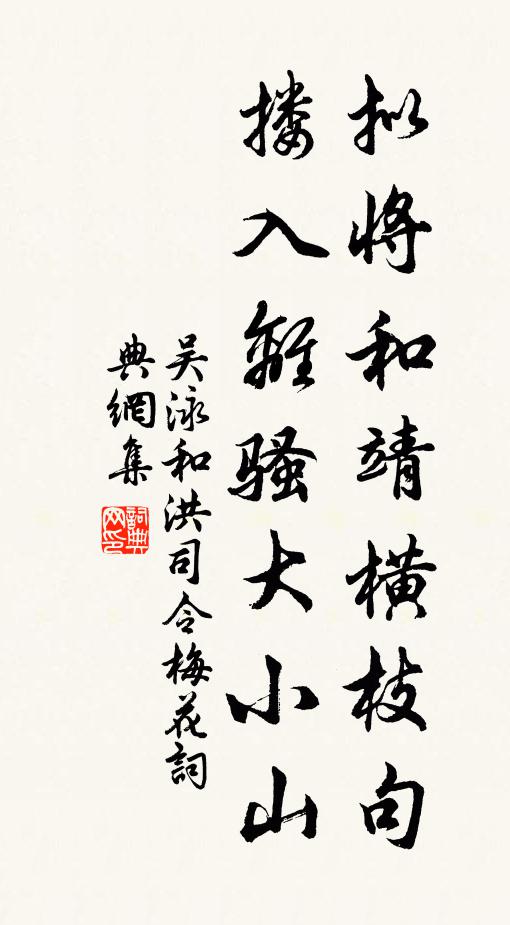 拟将和靖横枝句
搂入離骚大小山
吴泳和洪司令梅花詞
典網集
詞典网印